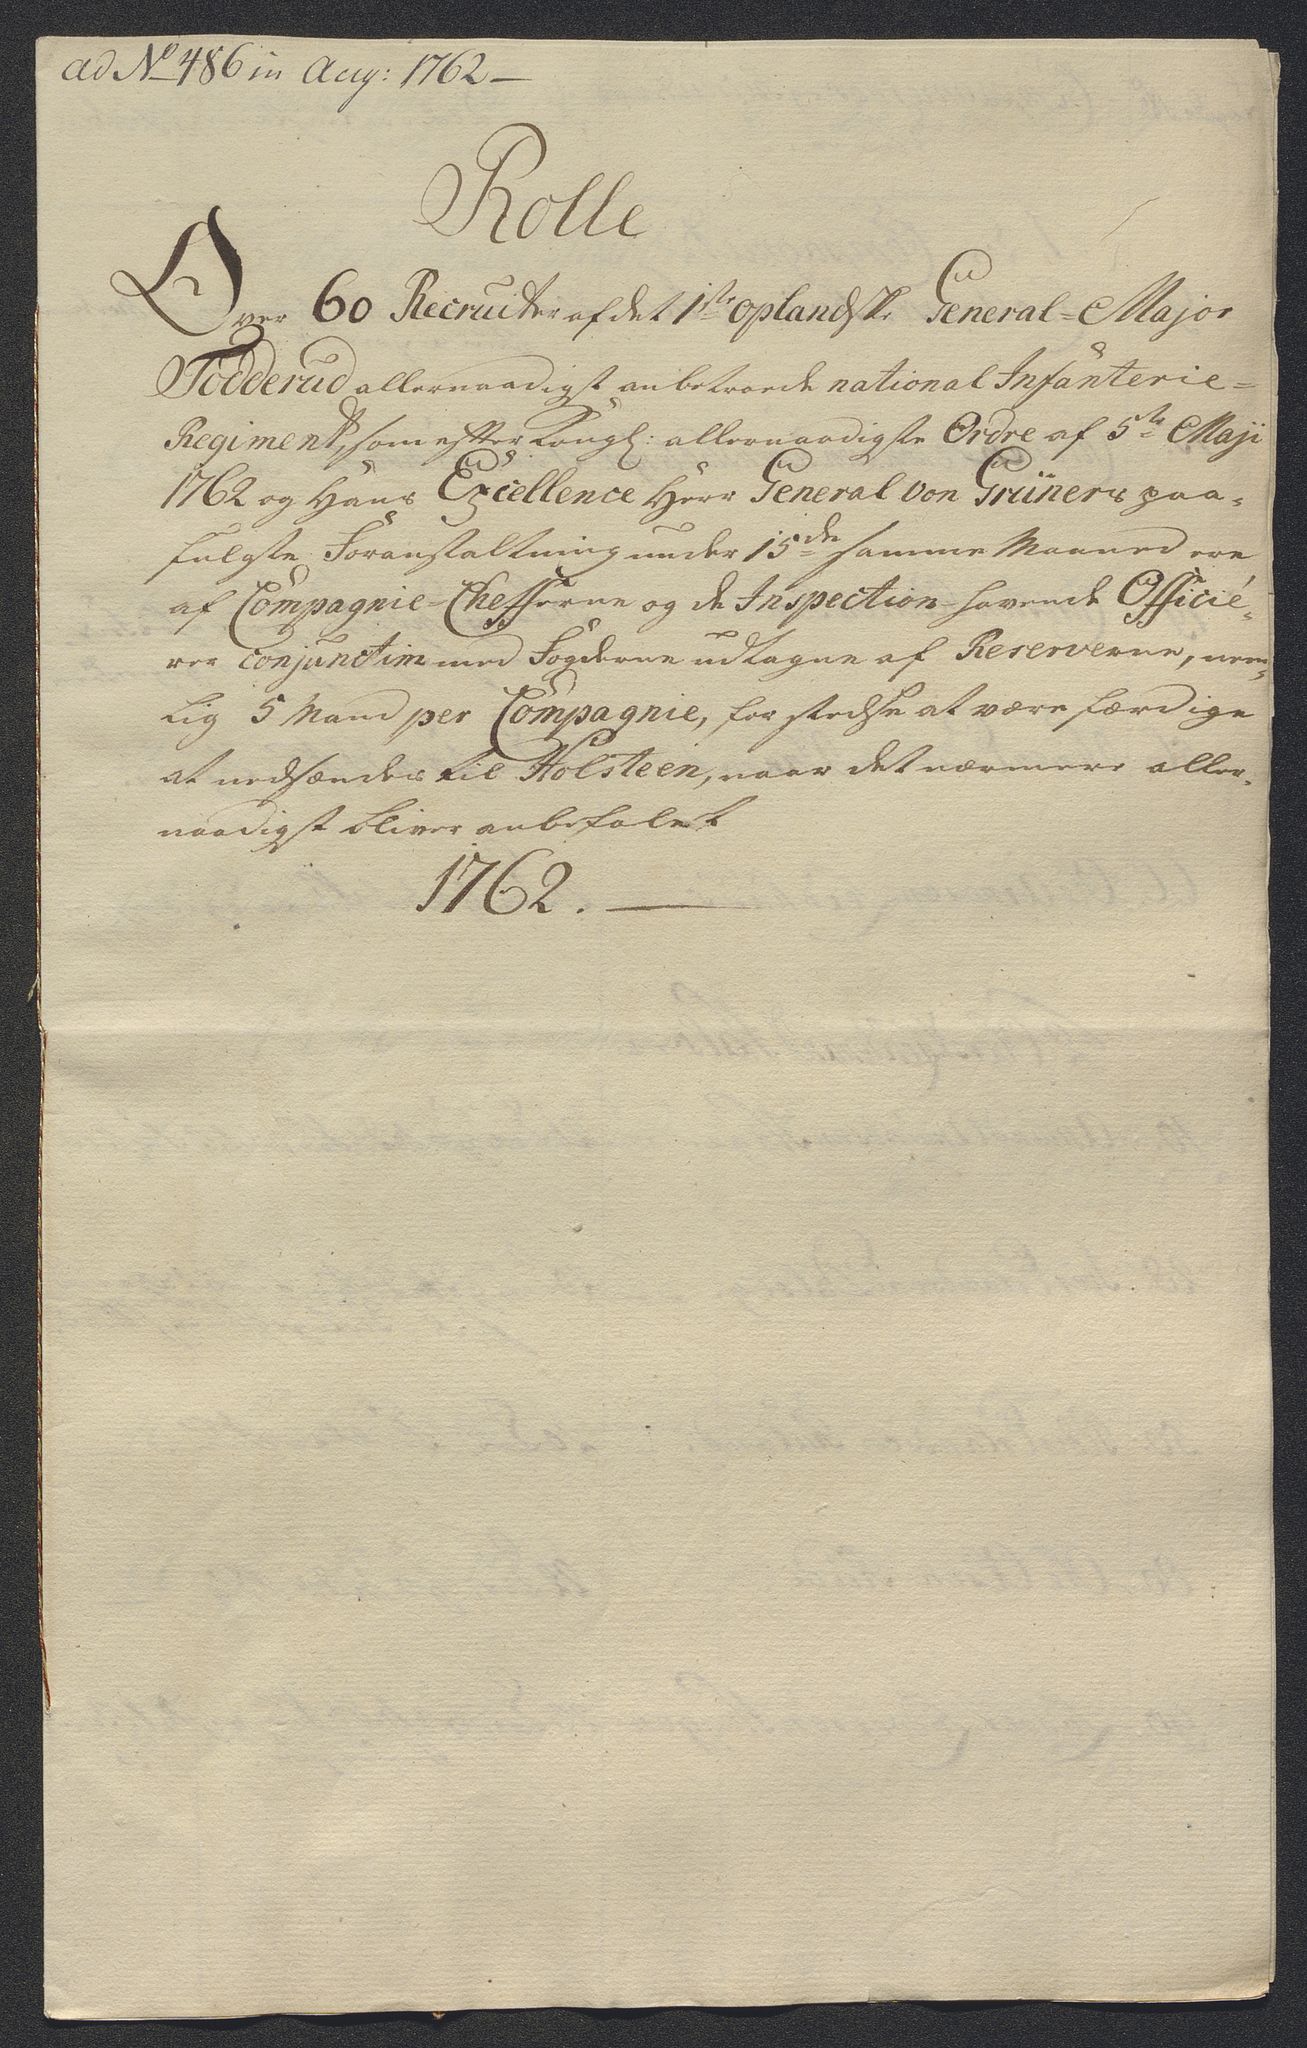 ad No 486 in Aug: 1762 —
Rolle
Over 60 Recruiter af det 1ste oplandske General=Major
Todderud allernaadigst anbetroede national Infanterie=
Regiment, som efter Kongl: allernaadigste Ordre af 5te Maji
1762 og Hans Excellence Herr General von Grüners paa=
fulgte Foranstaltning under 15de samme Maaned ere
af Compagnie-Chefferne og de Inspection havende Officié=
rer conjunctim med Fogderne udtagne af Reserverne, nem=
lig 5 Mand per Compagnie, for stedse at være færdige
at nedsændes til Holsteen, naar det nærmere aller=
naadigst bliver anbefalet
1762. —